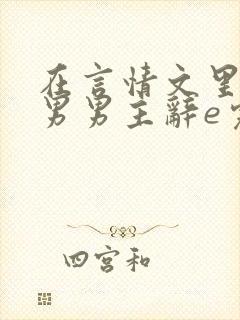 在言情文里
男男主辞e
四宫和